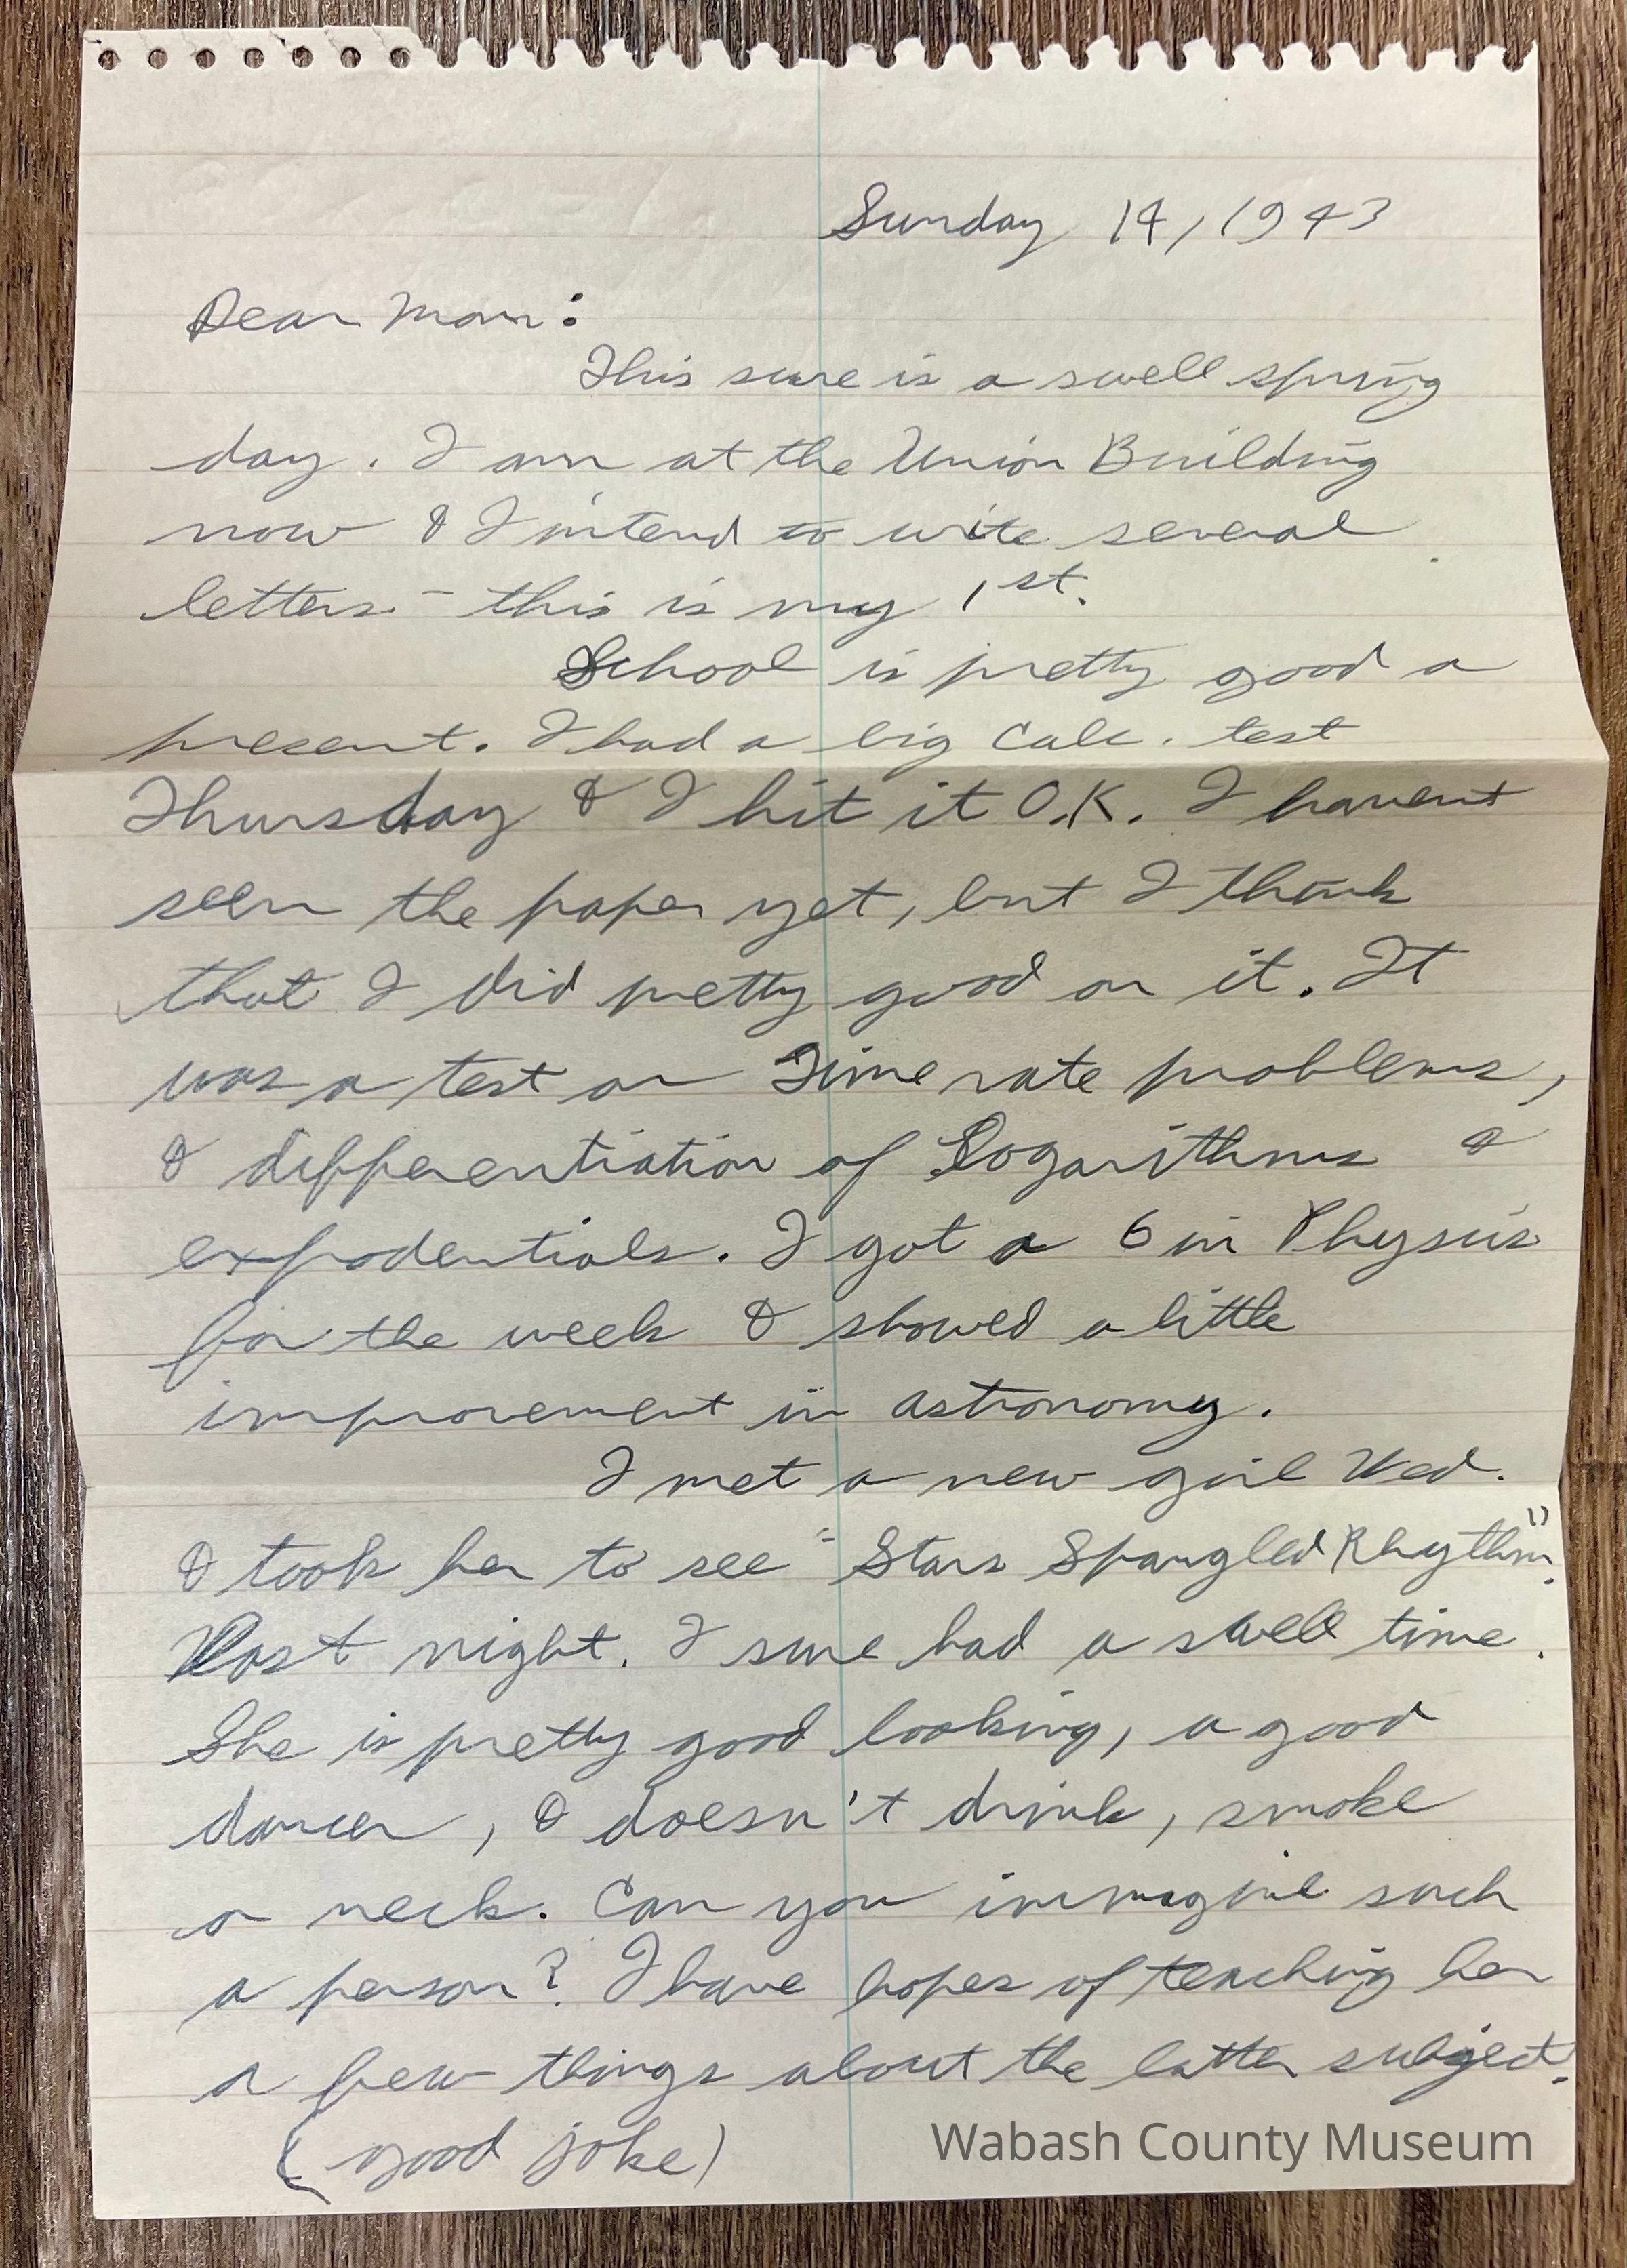 Sunday 14, 1943
Dear Mom:
This sure is a swell spring
day. I am at the Union Building
now & I intend to write several
letters - this is my 1st.
School is pretty good a
present. I had a big Calc. test
Thursday & I hit it O.K. I havent
seen the paper yet, but I think
that I did pretty good on it. It
was a test on Time rate problems,
& differentiation of Logarithms &
expodentials. I got a 6 in Physics
for the week & showed a little
improvement in astronomy.
I met a new girl Wed.
& took her to see "Stars Spangled Rhythm".
last night. I sure had a swell time.
She is pretty good looking, a good
dancer, & doesn't drink, smoke
or neck. Can you immagine such
a person? I have hopes of teaching her
a few things about the latter subject.
(good joke)
Wabash County Museum